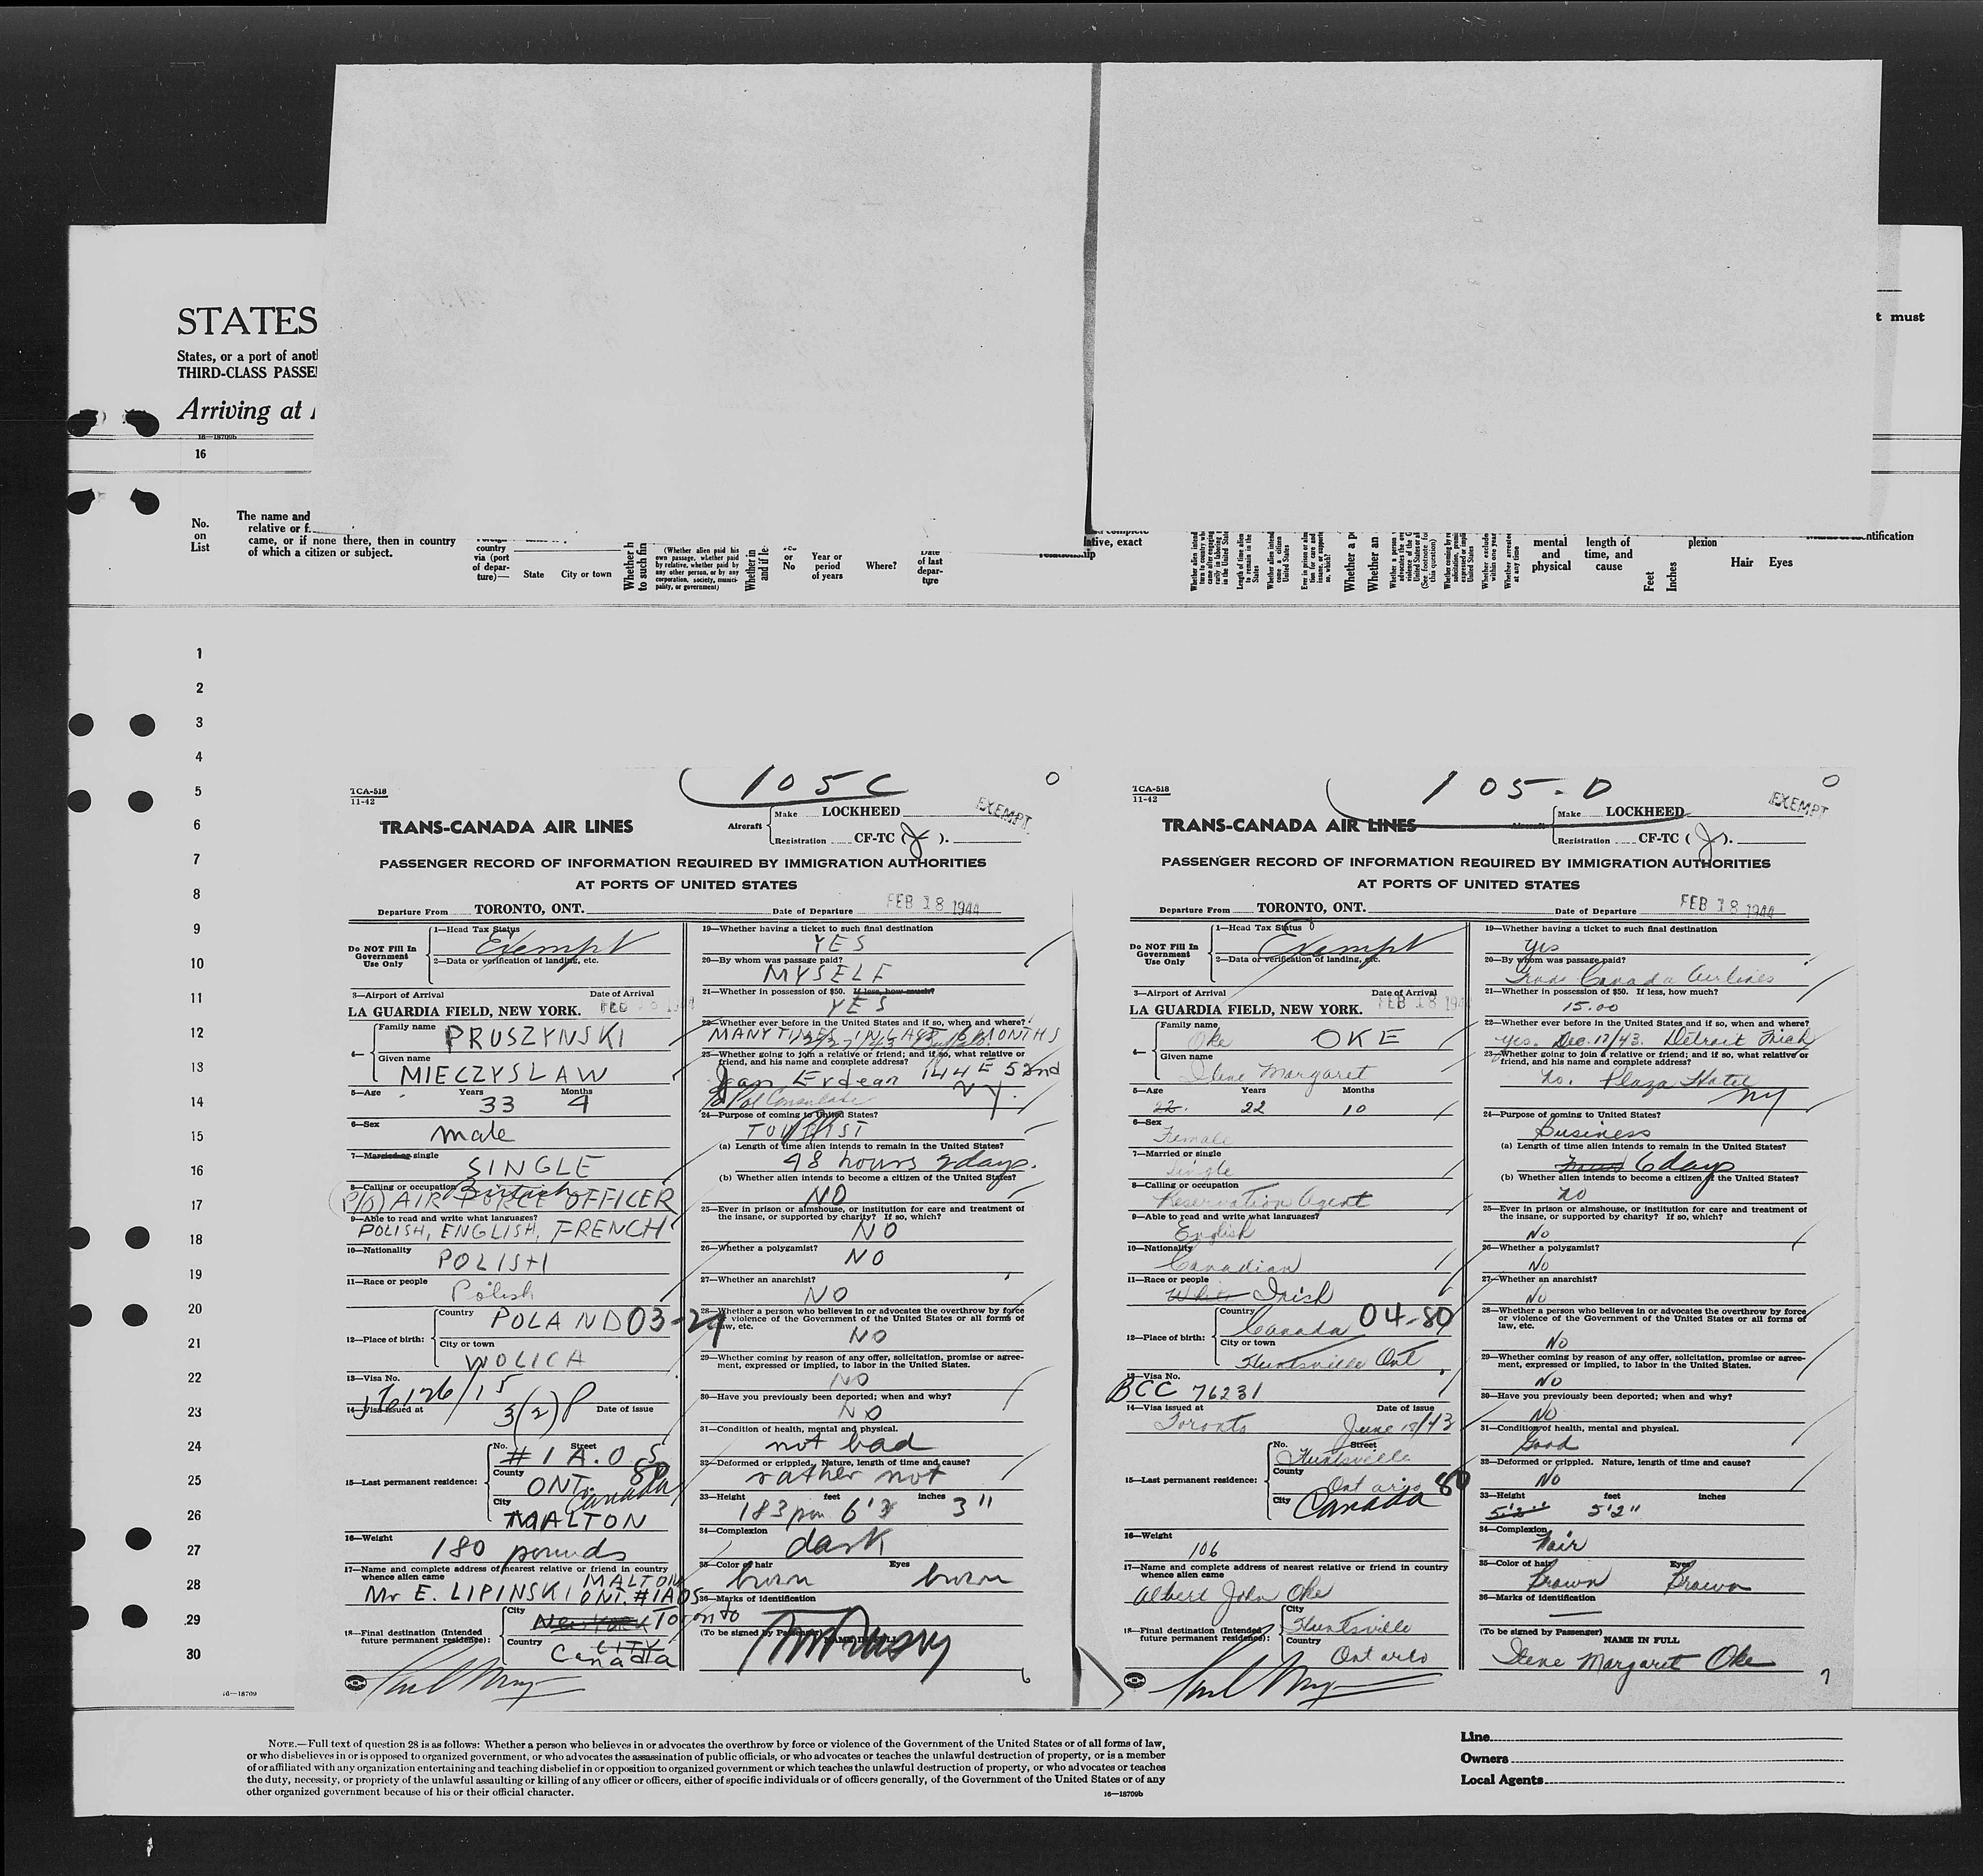 STATES
States, or a port of anot
THIRD-CLASS PASSE
Arriving at
16—18709b
16
t must
No.
on
List
The name and
relative or f
came, or if none there, then in country
of which a citizen or subject.
country
via (port
of depar-
ture)—
State
City or town
Whether h
to such fin
(Whether alien paid his
own passage, whether paid
by relative, whether paid by
any other person, or by any
corporation, society, munici-
pality, or government)
Whether in
and if le
or
No
Year or
period
of years
Where?
Date
of last
depar-
ture
lative, exact
Whether a p
Whether an
mental
and
physical
length of
time, and
cause
Feet
Inches
plexion
Hair
Eyes
ntification
1
2
3
4
5
6
7
8
9
10
11
12
13
14
15
16
17
18
19
20
21
22
23
24
25
26
27
28
29
30
16—18709
105C
TCA-518
11-42
EXEMPT
TRANS-CANADA AIR LINES
Aircraft
Make LOCKHEED
Registration CF-TC (J).
PASSENGER RECORD OF INFORMATION REQUIRED BY IMMIGRATION AUTHORITIES
AT PORTS OF UNITED STATES
Departure From TORONTO, ONT. Date of Departure FEB 18 1944
Do NOT Fill In
Government
Use Only
1—Head Tax Status
Exempt
2—Data or verification of landing, etc.
3—Airport of Arrival Date of Arrival
LA GUARDIA FIELD, NEW YORK. FEB 18 1944
4—
Family name
PRUSZYNSKI
Given name
MIECZYSLAW
5—Age Years Months
33 4
6—Sex
male
7—Married or single
SINGLE
8—Calling or occupation British
(P/O) AIR FORCE OFFICER
9—Able to read and write what languages?
POLISH, ENGLISH, FRENCH
10—Nationality
POLISH
11—Race or people
Polish
12—Place of birth:
Country
POLAND 03-21
City or town
WOLICA
13—Visa No.
126/15
14—Visa issued at Date of issue
3(2)P
15—Last permanent residence:
No. Street
#1 A.O.S
County
ONT. 80
Canada
City
MALTON
16—Weight
180 pounds
17—Name and complete address of nearest relative or friend in country
whence alien came
MALTON
Mr E. LIPINSKI ONT. #1AOS
18—Final destination (Intended
future permanent residence):
City
New York Toronto
CITY
Country
Canada
19—Whether having a ticket to such final destination
YES
20—By whom was passage paid?
MYSELF
21—Whether in possession of $50. If less, how much?
YES
22—Whether ever before in the United States and if so, when and where?
MANY TIMES IN LAST 6 MONTHS
12/27/43 Buffalo.
23—Whether going to join a relative or friend; and if so, what relative or
friend, and his name and complete address?
Jan Erdean 144 E 52nd
Pol Consulate NY.
24—Purpose of coming to United States?
TOURIST
(a) Length of time alien intends to remain in the United States?
48 hours 2 days.
(b) Whether alien intends to become a citizen of the United States?
NO
25—Ever in prison or almshouse, or institution for care and treatment of
the insane, or supported by charity? If so, which?
NO
26—Whether a polygamist?
NO
27—Whether an anarchist?
NO
28—Whether a person who believes in or advocates the overthrow by force
or violence of the Government of the United States or all forms of
law, etc.
NO
29—Whether coming by reason of any offer, solicitation, promise or agree-
ment, expressed or implied, to labor in the United States.
NO
30—Have you previously been deported; when and why?
NO
31—Condition of health, mental and physical.
not bad
32—Deformed or crippled. Nature, length of time and cause?
rather not
33—Height feet inches
183 6' 3"
34—Complexion
dark
35—Color of hair Eyes
brown brown
36—Marks of identification
(To be signed by Passenger) NAME IN FULL
6
105-D
TCA-518
11-42
EXEMPT
TRANS-CANADA AIR LINES
Aircraft
Make LOCKHEED
Registration CF-TC (J).
PASSENGER RECORD OF INFORMATION REQUIRED BY IMMIGRATION AUTHORITIES
AT PORTS OF UNITED STATES
Departure From TORONTO, ONT. Date of Departure FEB 18 1944
Do NOT Fill In
Government
Use Only
1—Head Tax Status
Exempt
2—Data or verification of landing, etc.
3—Airport of Arrival Date of Arrival
LA GUARDIA FIELD, NEW YORK. FEB 18 194
4—
Family name
Oke OKE
Given name
Ilene Margaret
5—Age Years Months
22. 22 10
6—Sex
Female
7—Married or single
Single
8—Calling or occupation
Reservation Agent
9—Able to read and write what languages?
English
10—Nationality
Canadian
11—Race or people
White Irish
12—Place of birth:
Country
Canada 04-80
City or town
Huntsville Ont
13—Visa No.
BCC 76231
14—Visa issued at Date of issue
Toronto June 18/43
15—Last permanent residence:
No. Street
Huntsville
County
Ontario 80
City
Canada
16—Weight
106
17—Name and complete address of nearest relative or friend in country
whence alien came
Albert John Oke
18—Final destination (Intended
future permanent residence):
City
Huntsville
Country
Ontario
19—Whether having a ticket to such final destination
Yes
20—By whom was passage paid?
Trans Canada Airlines
21—Whether in possession of $50. If less, how much?
15.00
22—Whether ever before in the United States and if so, when and where?
Yes. Dec. 17/43. Detroit Mich
23—Whether going to join a relative or friend; and if so, what relative or
friend, and his name and complete address?
No. Plaza Hotel
NY
24—Purpose of coming to United States?
Business
(a) Length of time alien intends to remain in the United States?
6 days
(b) Whether alien intends to become a citizen of the United States?
no
25—Ever in prison or almshouse, or institution for care and treatment of
the insane, or supported by charity? If so, which?
No
26—Whether a polygamist?
No
27—Whether an anarchist?
No
28—Whether a person who believes in or advocates the overthrow by force
or violence of the Government of the United States or all forms of
law, etc.
No
29—Whether coming by reason of any offer, solicitation, promise or agree-
ment, expressed or implied, to labor in the United States.
No
30—Have you previously been deported; when and why?
NO
31—Condition of health, mental and physical.
Good
32—Deformed or crippled. Nature, length of time and cause?
No
33—Height feet inches
5'2" 5'2"
34—Complexion
Fair
35—Color of hair Eyes
Brown Brown
36—Marks of identification
(To be signed by Passenger)
NAME IN FULL
Ilene Margaret Oke
7
NOTE.—Full text of question 28 is as follows: Whether a person who believes in or advocates the overthrow by force or violence of the Government of the United States or of all forms of law,
or who disbelieves in or is opposed to organized government, or who advocates the assassination of public officials, or who advocates or teaches the unlawful destruction of property, or is a member
of or affiliated with any organization entertaining and teaching disbelief in or opposition to organized government or which teaches the unlawful destruction of property, or who advocates or teaches
the duty, necessity, or propriety of the unlawful assaulting or killing of any officer or officers, either of specific individuals or of officers generally, of the Government of the United States or of any
other organized government because of his or their official character.
16—18709b
Line
Owners
Local Agents